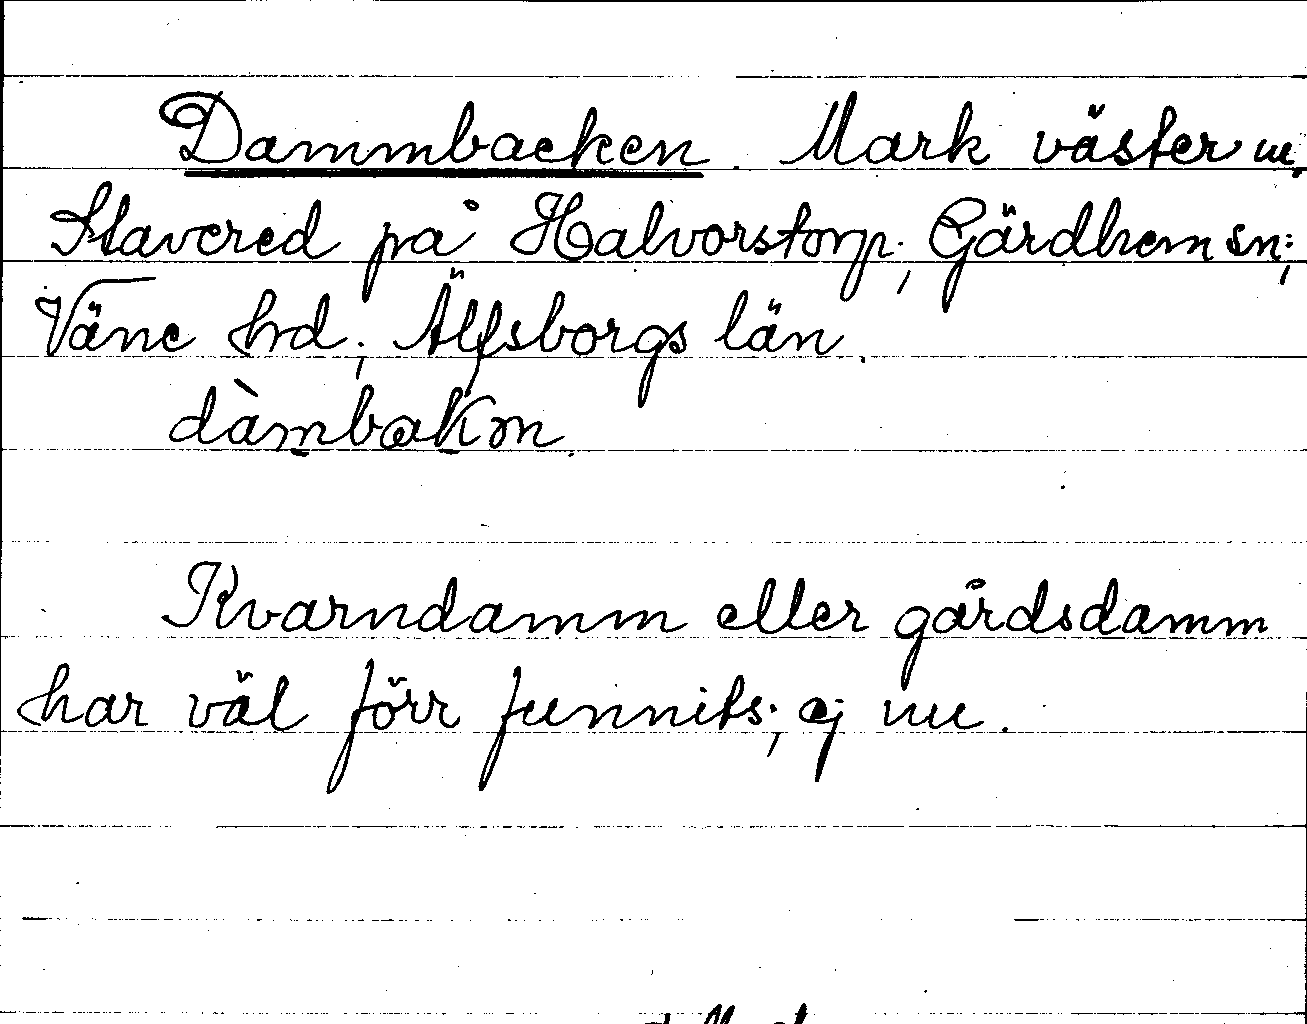 Dammbacken. Mark väster u.
Stavered på Halvorstorp, Gärdhem sn;
Väne hd, Älfsborgs län.
dàmbakm.
Kvarndamm eller gårdsdamm
har väl förr funnits, ej nu.